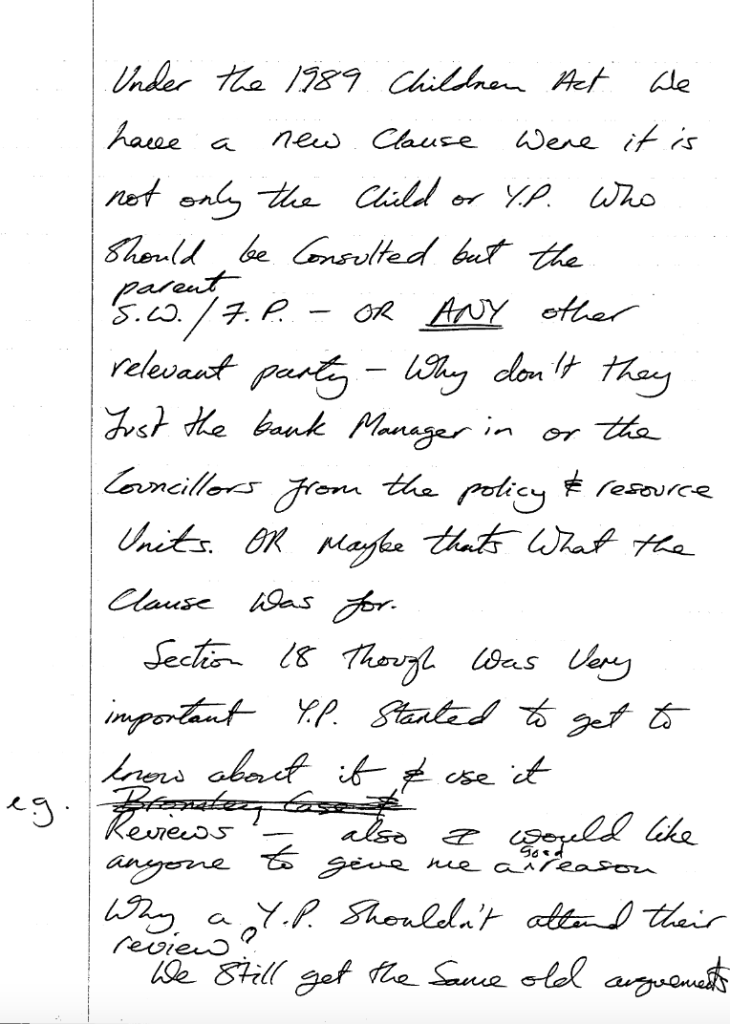 Under the 1989 Children Act We
have a new Clause Were it is
not only the Child or Y.P. Who
Should be Consulted but the
parent
S.W. / F.P. – OR ANY other
relevant party – Why don't they
Just the bank Manager in or the
Councillors from the policy & resource
Units. OR Maybe thats What the
Clause Was for.
Section 18 Though Was Very
important Y.P. Started to get to
know about it & use it
e.g. Bromley Case &
Reviews – also I would like
anyone to give me a good reason
Why a Y.P. Shouldn't attend their
review?
We Still get the Same old arguements